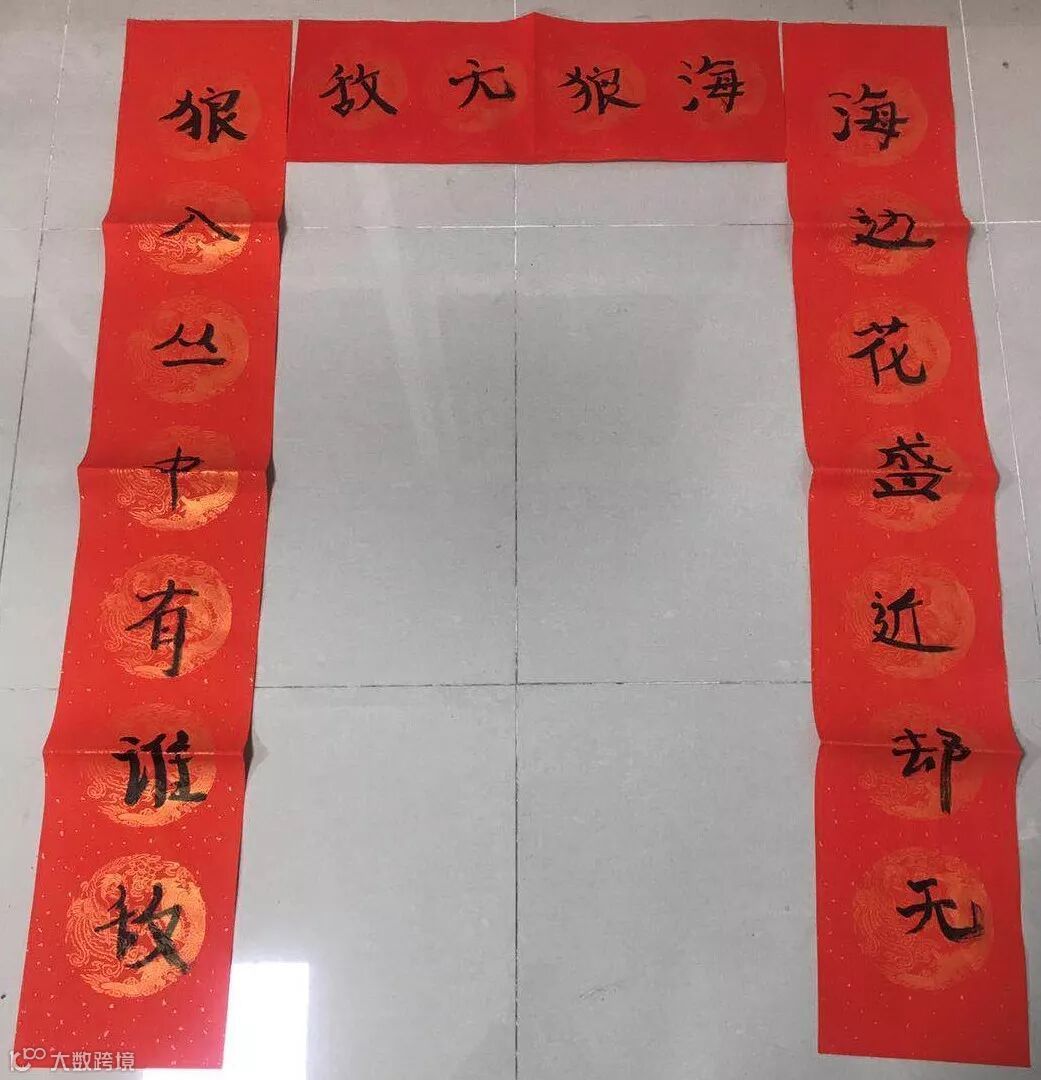 海边花盛近却无
狼入丛中有谁敌
海狼无敌
大数跨境